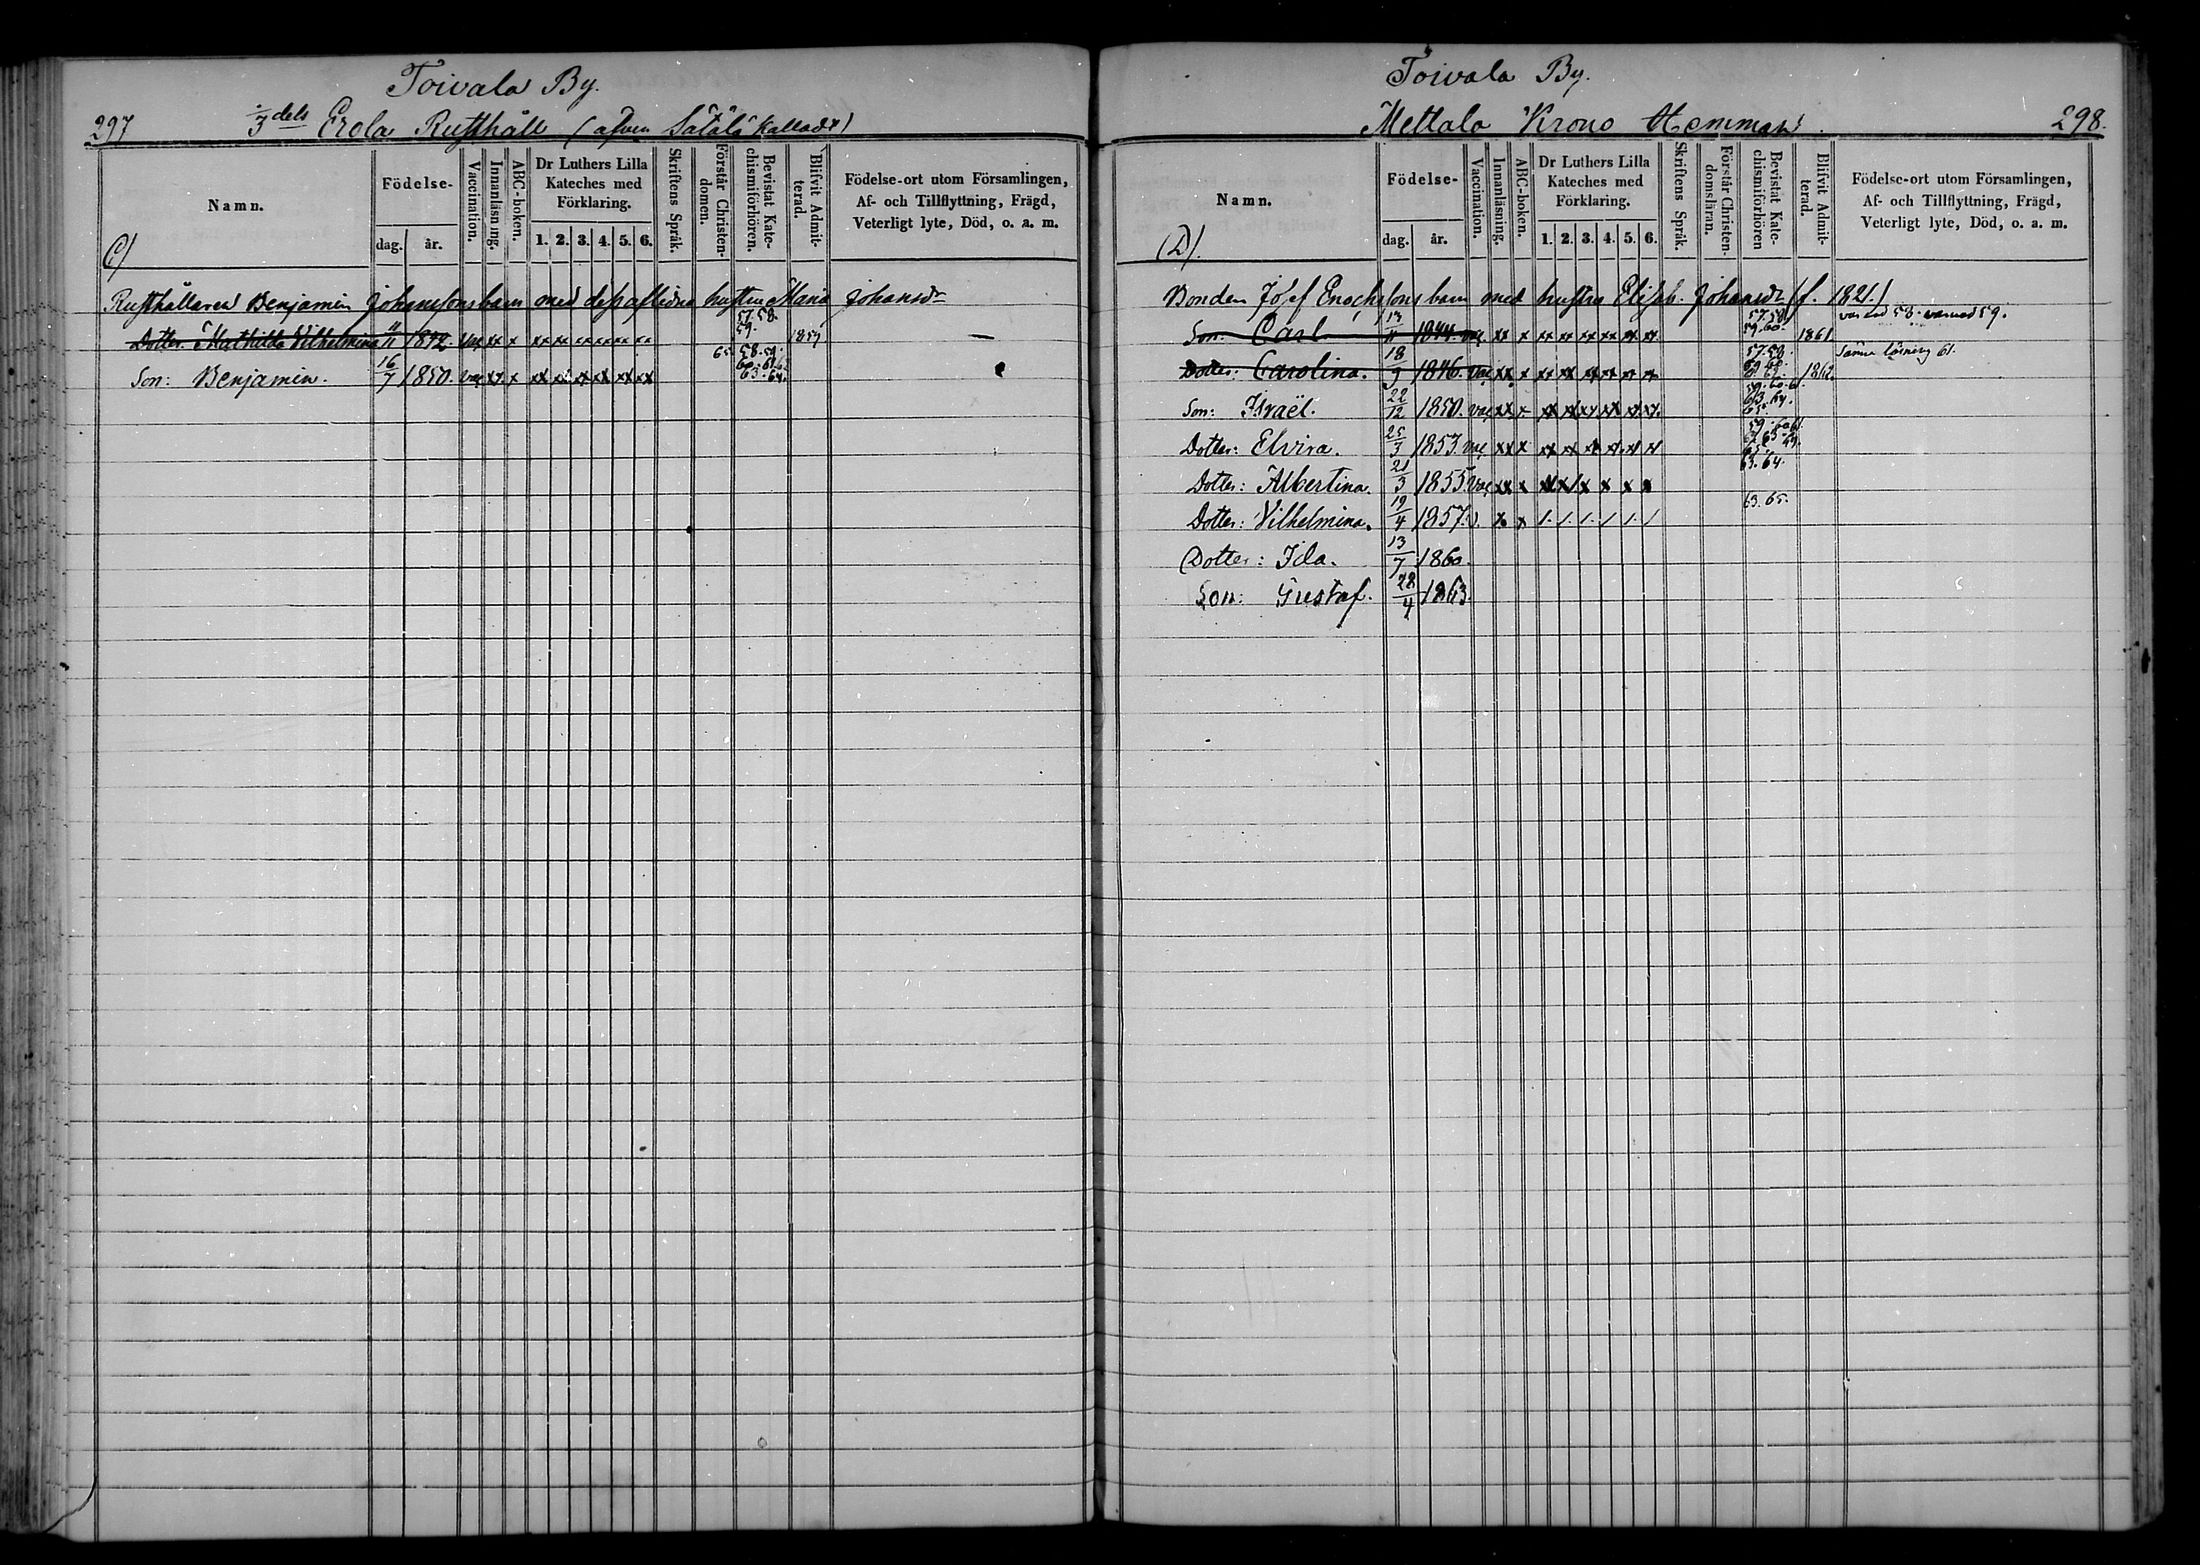 Toivala By.
297 1/3 dels Erola Rusthåll (äfven Sätälä kalladt)
Namn. Födelse- dag. år. Vaccination. Innanläsning. ABC-boken. Dr Luthers Lilla Kateches med Förklaring. 1. 2. 3. 4. 5. 6. Skriftens Språk. Förstår Christendomen. Bevistat Katechismiförhören. Blifvit Admitterad. Födelse-ort utom Församlingen, Af- och Tillflyttning, Frägd, Veterligt lyte, Död, o. a. m.
C)
Rusthållaren Benjamin Johanssons barn med dess aflidna hustru Maria Johansdr
Dotter: Mathilda Vilhelmina 11 1842. vac xx x xx xx xx xx xx xx 57. 58. 59. 1859 —
Son: Benjamin. 16/7 1850. vac xx x xx xx xx xx xx xx 65. 58. 59. 60. 61. 63. 64.
Toivala By.
Mettala Krono Hemman. 298.
Namn. Födelse- dag. år. Vaccination. Innanläsning. ABC-boken. Dr Luthers Lilla Kateches med Förklaring. 1. 2. 3. 4. 5. 6. Skriftens Språk. Förstår Christendomsläran. Bevistat Katechismiförhören Blifvit Admitterad. Födelse-ort utom Församlingen, Af- och Tillflyttning, Frägd, Veterligt lyte, Död, o. a. m.
(D).
Bonden Josef Enochssons barn med hustru Elisab. Johansdr (f. 1821.)
Son: Carl 13/11 1844. vac xx x xx xx xx xx xx xx 57. 58. 59. 60. 1861.
Dotter: Carolina. 18/9 1846. vac xx x xx xx xx xx xx xx 57. 58. 1862. Sämre läsning 61.
Son: Israël. 22/12 1850. vac xx x xx xx xx xx xx xx 59. 60. 61 63. 64. 65.
Dotter: Elvira. 25/3 1853. vac xx x xx xx xx xx xx xx 59. 60 61.
Dotter: Albertina. 21/3 1855 vac xx x x x x x x x 63. 64.
Dotter: Vilhelmina. 19/4 1857. v. x x /. /. /. / /. / 63. 65.
Dotter: Ida. 13/7 1860.
Son: Gustaf. 28/4 1863.